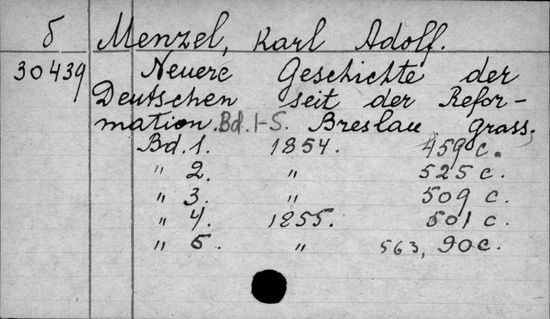 б Menzel, Karl Adolf.
30439 Neuere Geschichte der
Deutschen seit der Refor-
mation. Bd. 1-5. Breslau, Grass.
Bd. 1. 1854. 459 c.
" 2. " 525 c.
" 3. " 509 c.
" 4. 1855. 501 c.
" 5. " 563, 90 c.